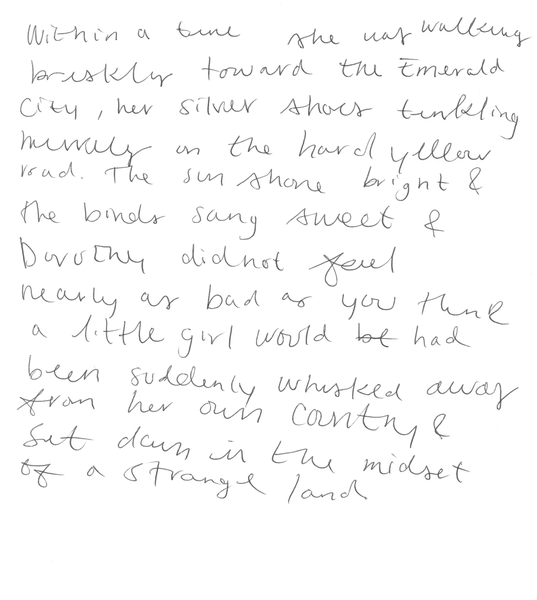 Within a time she was walking
briskly toward the Emerald
City, her silver shoes tinkling
merrily on the hard yellow
road. The sun shone bright &
the birds sang sweet &
Dorothy did not feel
nearly as bad as you think
a little girl would be had
been suddenly whisked away
from her own country &
set down in the midset
of a strange land